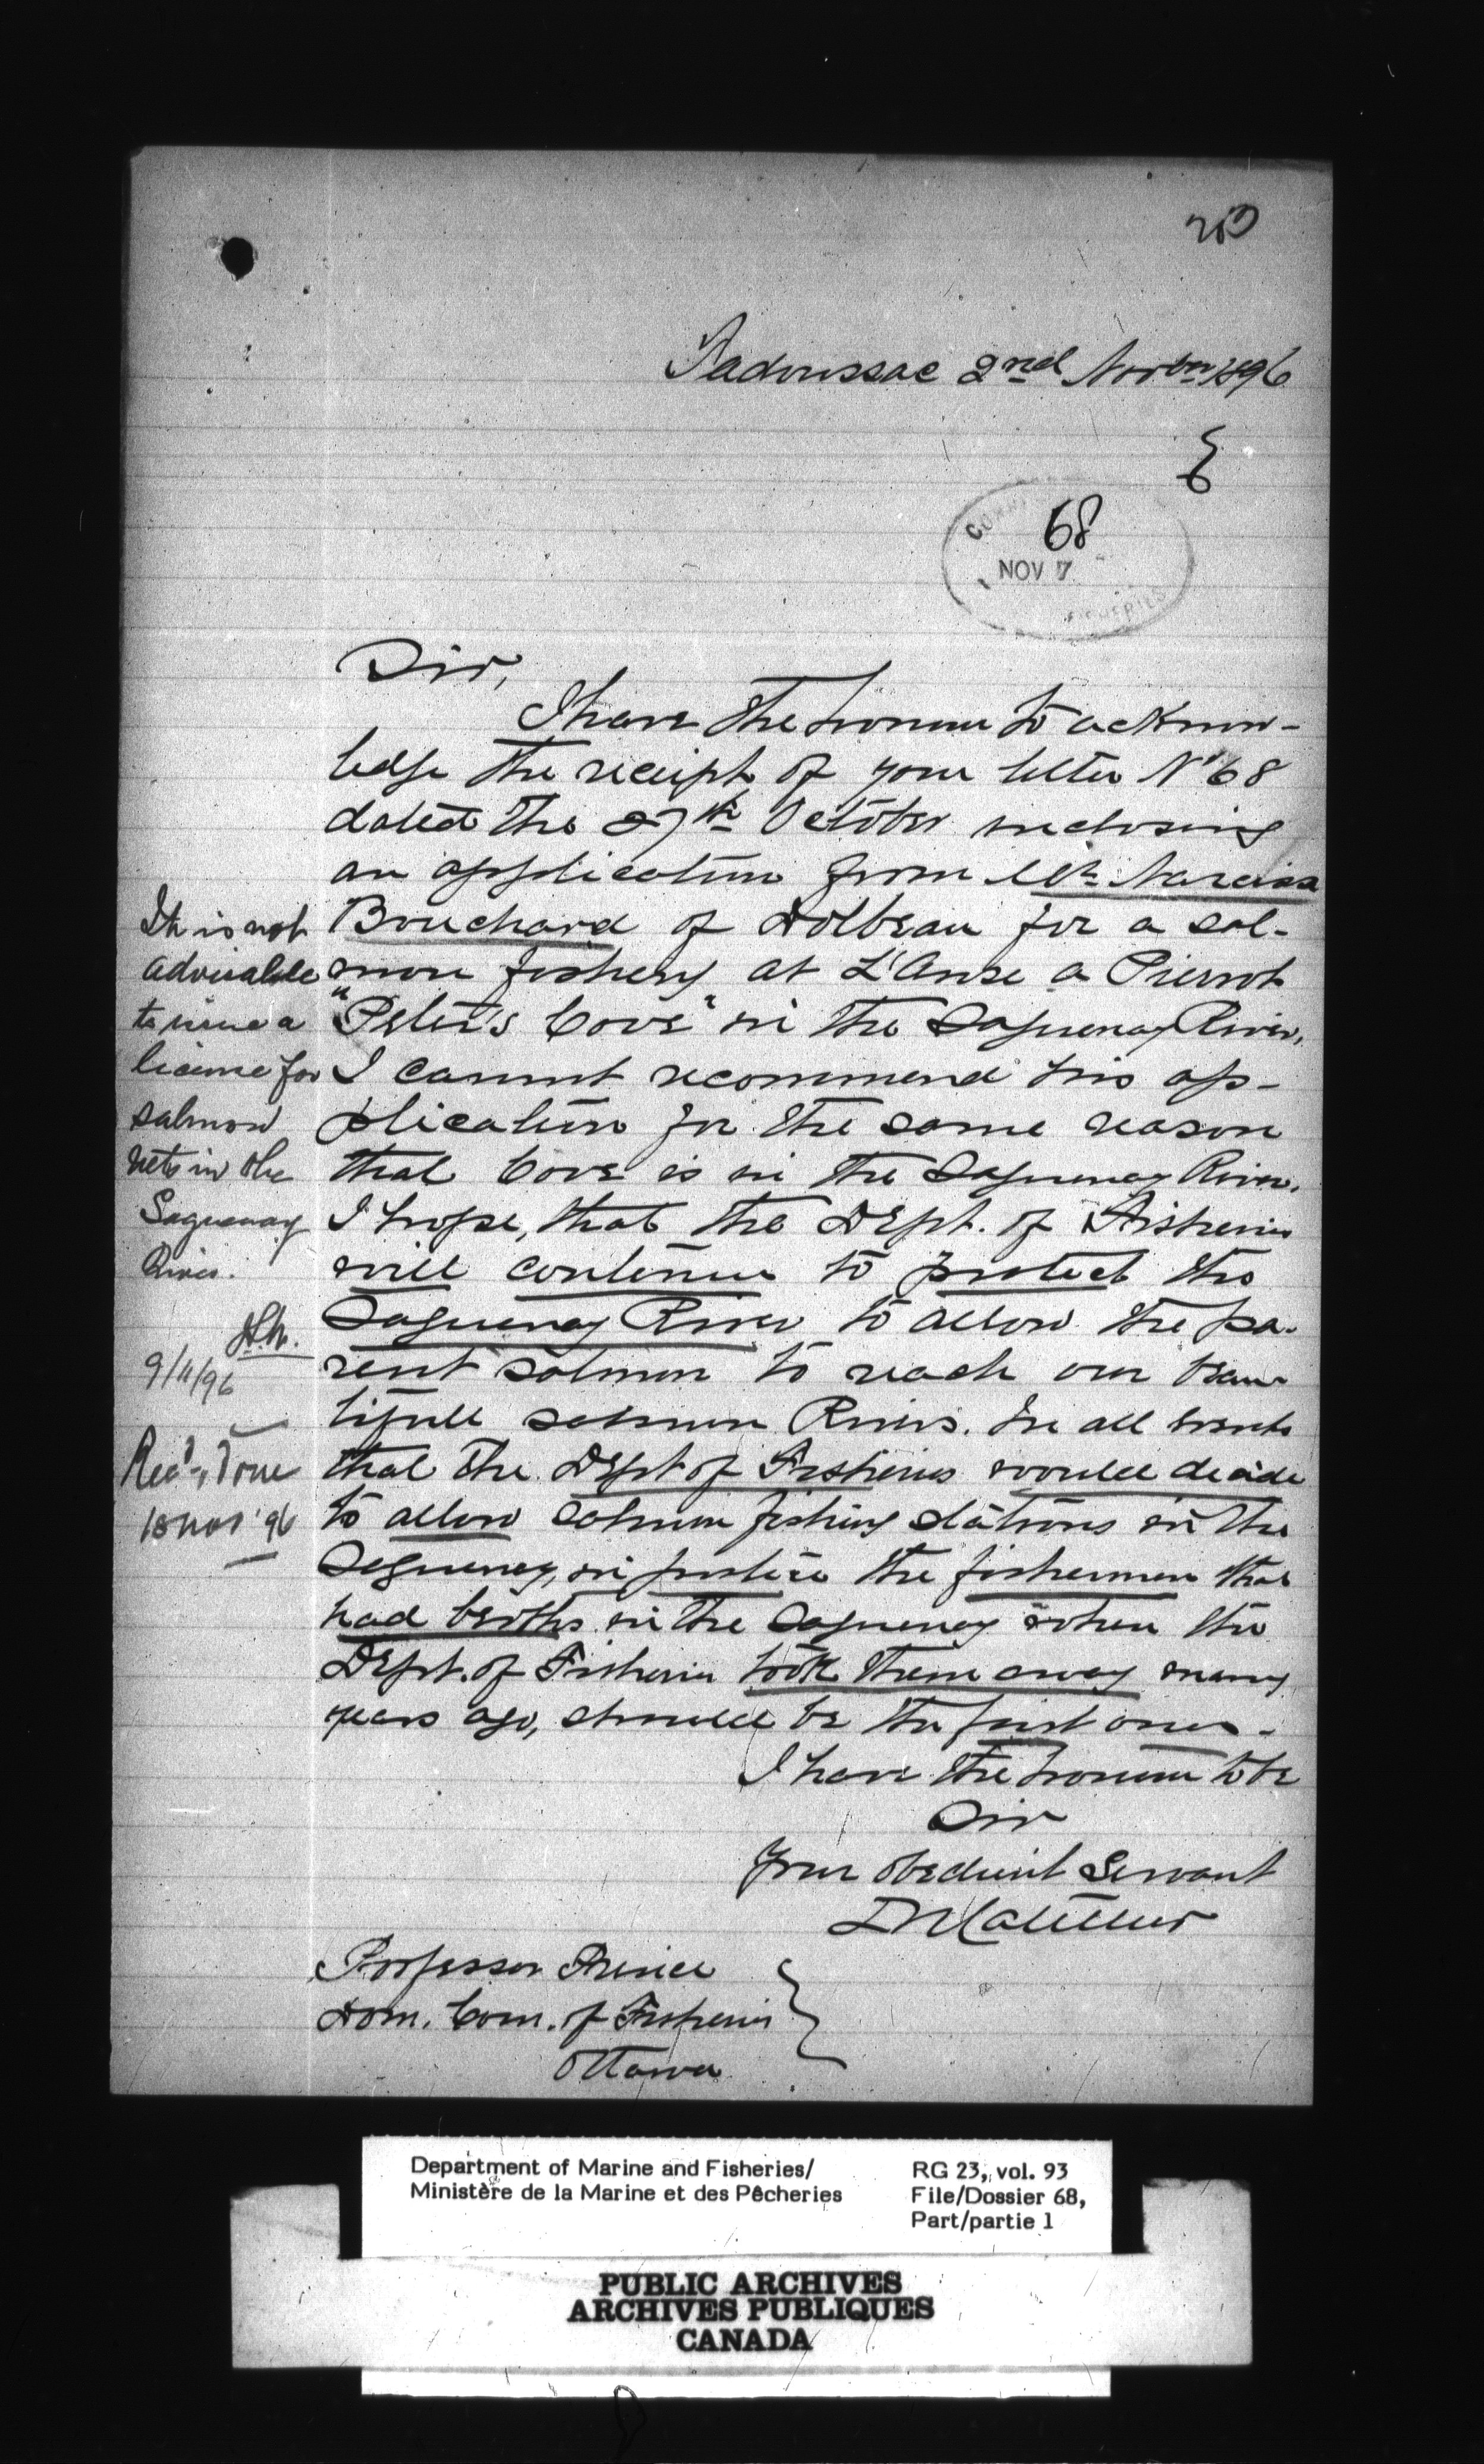 Tadoussac 2nd Novber 1896
68
NOV 7
FISHERIES
Sir,
I have the honour to acknow-
ledge the receipt of your letter No 68
dated the 27th October inclosing
an application from Mr. Narcisse
Bouchard of Dolbeau for a sal-
mon fishery at L'Anse a Pierrot
"Peter's Cove" in the Saguenay River,
I cannot recommend his ap-
plication for the same reason
that Cove is in the Saguenay River.
I hope, that the Dept. of Fisheries
will continue to protect the
Saguenay River to allow the pa-
rent salmon to reach our beau-
tifull salmon Rivers. In all events
that the Dept of Fisheries would decide
to allow salmon fishing stations in the
Saguenay, in justice the fishermen that
had berths in the Saguenay when the
Dept. of Fisheries took them away many
years ago, should be the first ones.
I have the honour to be
Sir
Your obedient Servant
Professor Prince
Dom. Com. of Fisheries
Ottawa
It is not
advisable
to issue a
license for
salmon
nets in the
Saguenay
River.
9/11/96
18 Nov '96
Department of Marine and Fisheries/
Ministère de la Marine et des Pêcheries
RG 23, vol. 93
File/Dossier 68,
Part/partie 1
PUBLIC ARCHIVES
ARCHIVES PUBLIQUES
CANADA